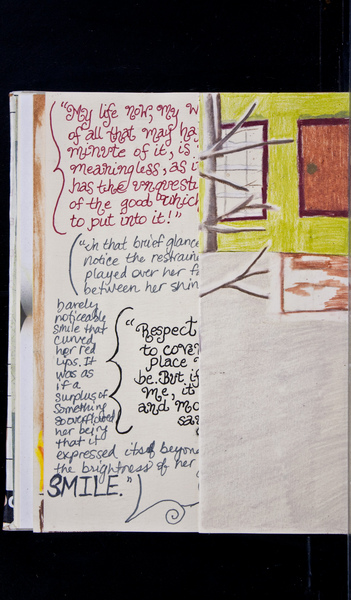 "My life now, my w
of all that may ha
minute of it, is
meaningless, as i
has the unquesti
of the good which
to put into it!"
"In that brief glance
notice the restraine
played over her f
between her shin
barely
noticeable
smile that
curved
her red
lips. It
was as
if a
surplus of
something
so overflowed
her being
that it
expressed itself beyond
the brightness of her
SMILE."
"Respect
to cover
place
be. But if
me, it
and mo
say